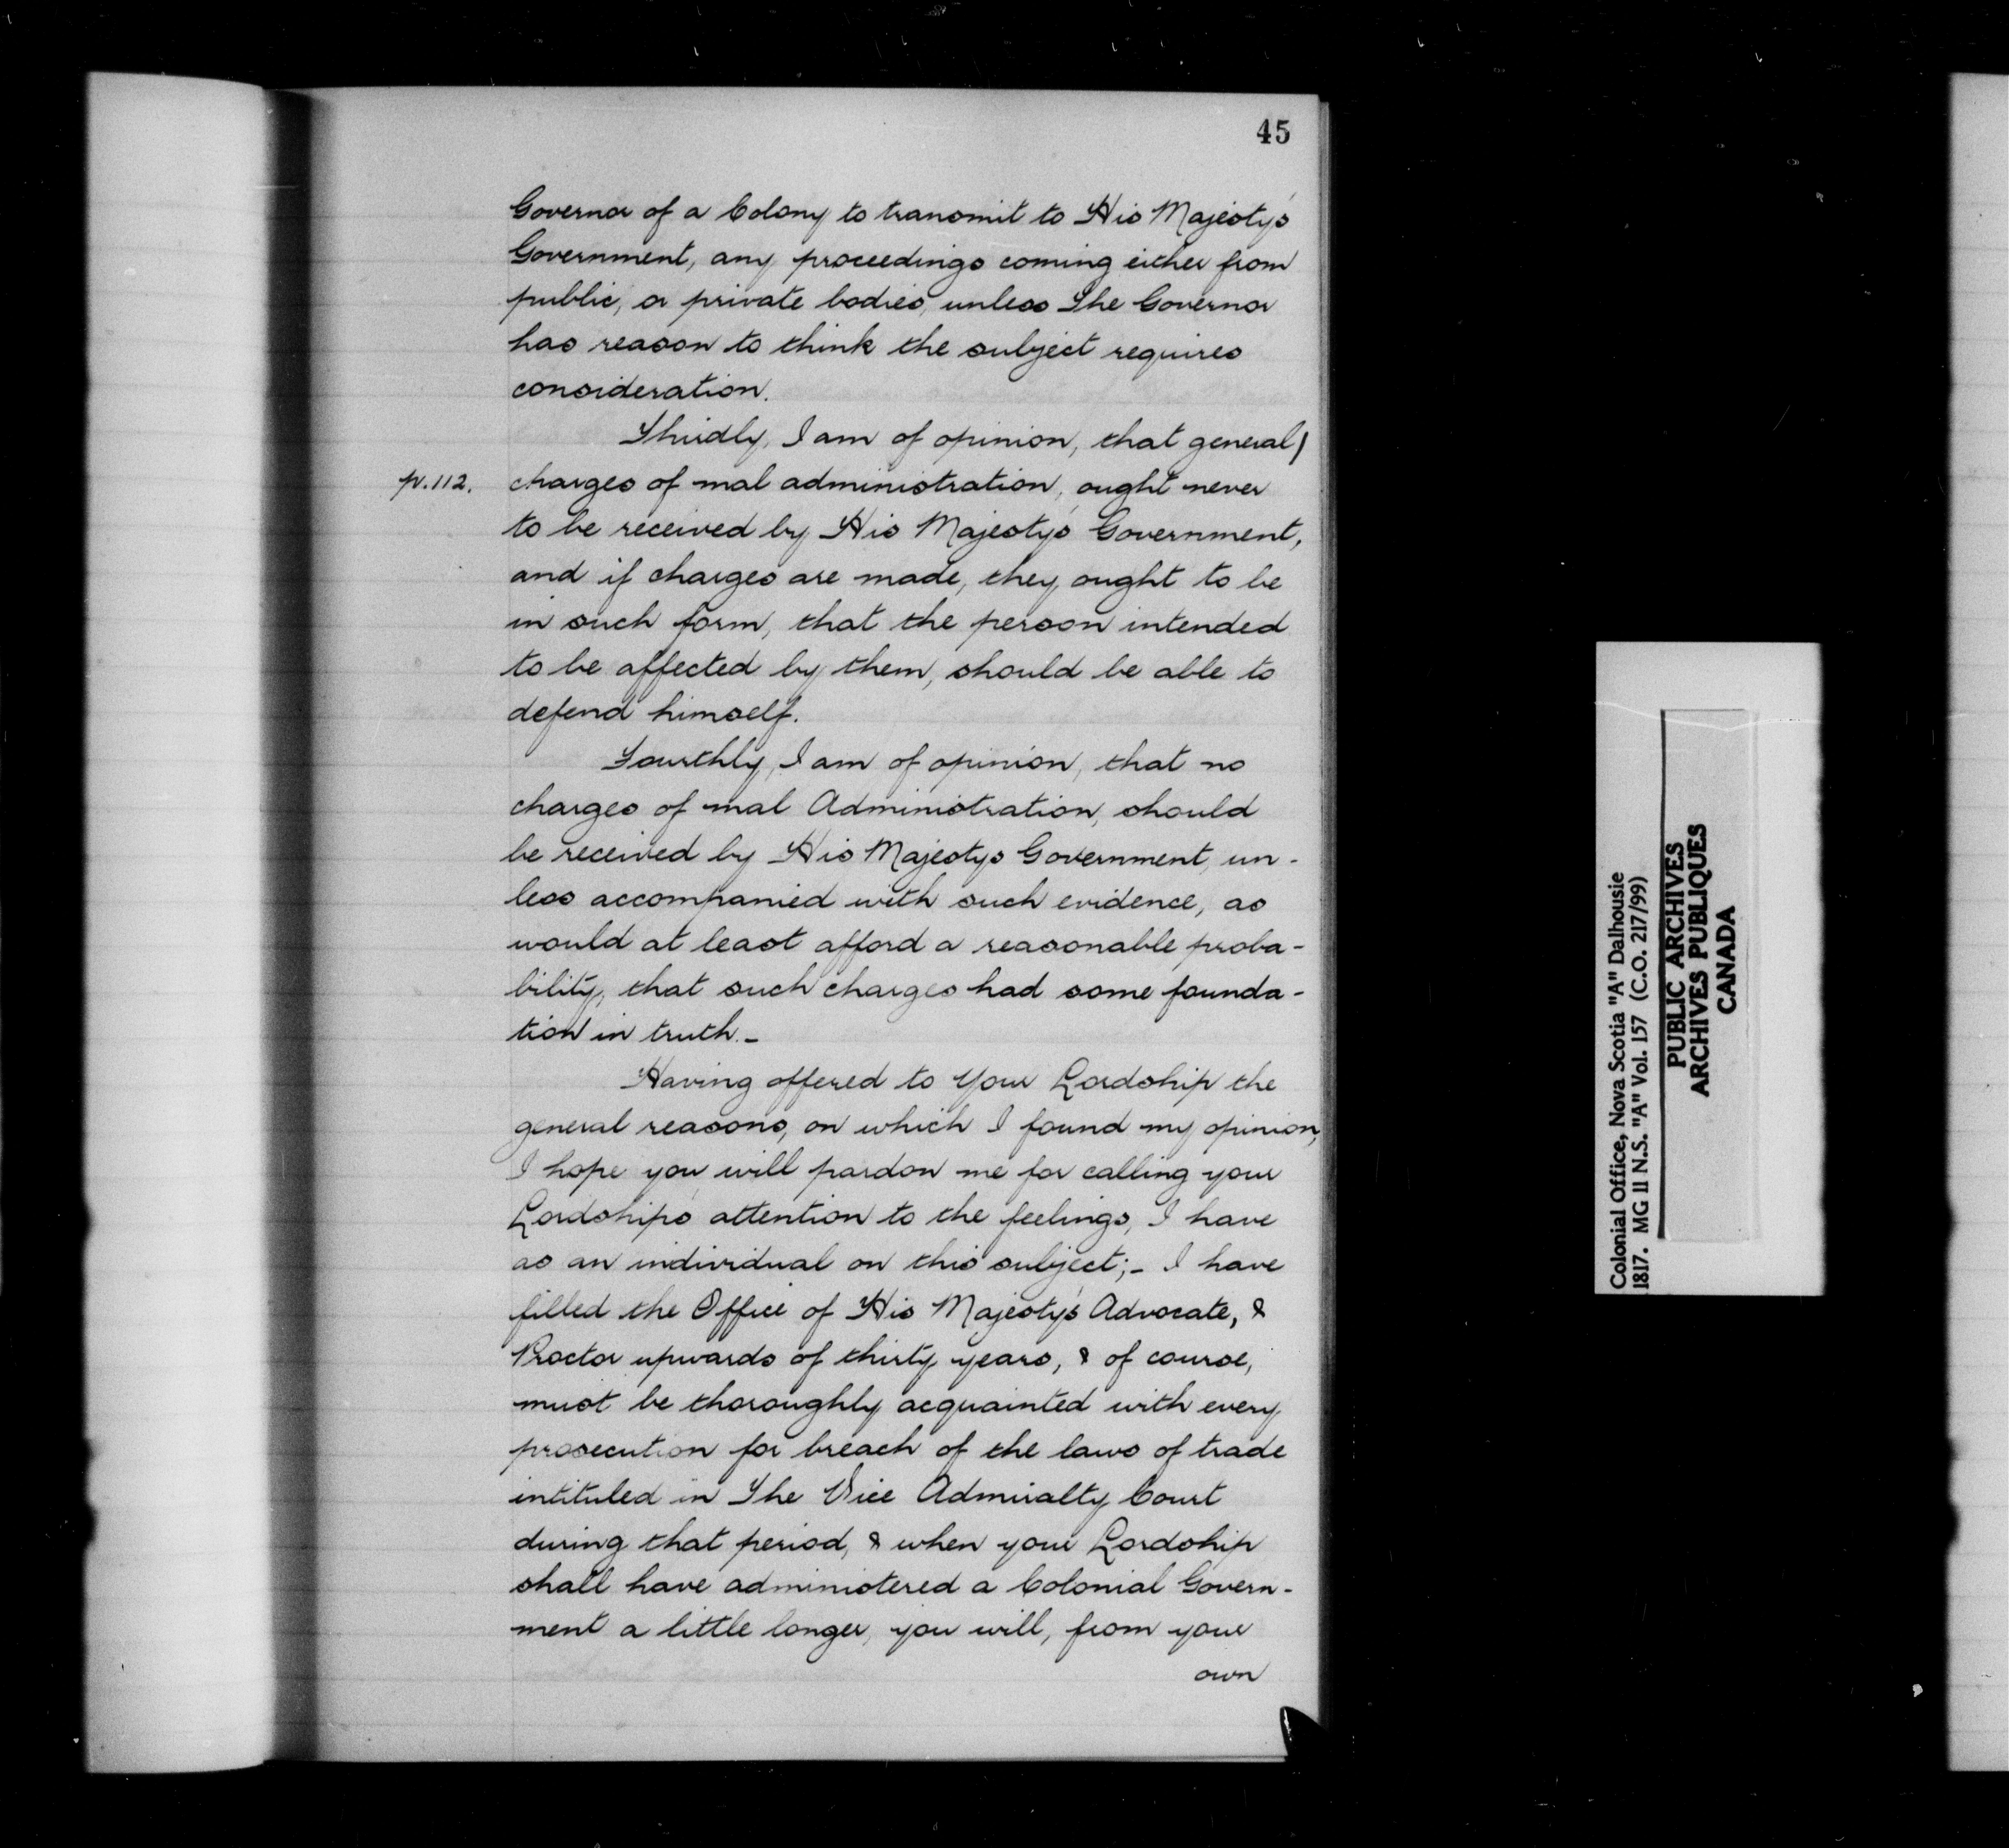 45
Governor of a Colony to transmit to His Majesty's
Government, any proceedings coming either from
public, or private bodies, unless The Governor
has reason to think the subject requires
consideration.
Thirdly, I am of opinion, that general/
p.112. charges of mal administration, ought never
to be received by His Majesty's Government,
and if charges are made, they ought to be
in such form, that the person intended
to be affected by them, should be able to
defend himself.
Fourthly, I am of opinion, that no
charges of mal Administration, should
be received by His Majestys Government, un-
less accompanied with such evidence, as
would at least afford a reasonable proba-
bility, that such charges had some founda-
tion in truth.-
Having offered to Your Lordship the
general reasons, on which I found my opinion,
I hope you will pardon me for calling your
Lordship's attention to the feelings, I have
as an individual on this subject;- I have
filled the Office of His Majesty's Advocate, &
Proctor upwards of thirty years, & of course,
must be thoroughly acquainted with every
prosecution for breach of the laws of trade
intituled in The Vice Admiralty Court
during that period, & when your Lordship
shall have administered a Colonial Govern-
ment a little longer, you will, from your
own
Colonial Office, Nova Scotia "A" Dalhousie
1817. MG 11 N.S. "A" Vol. 157 (C.O. 217/99)
PUBLIC ARCHIVES
ARCHIVES PUBLIQUES
CANADA